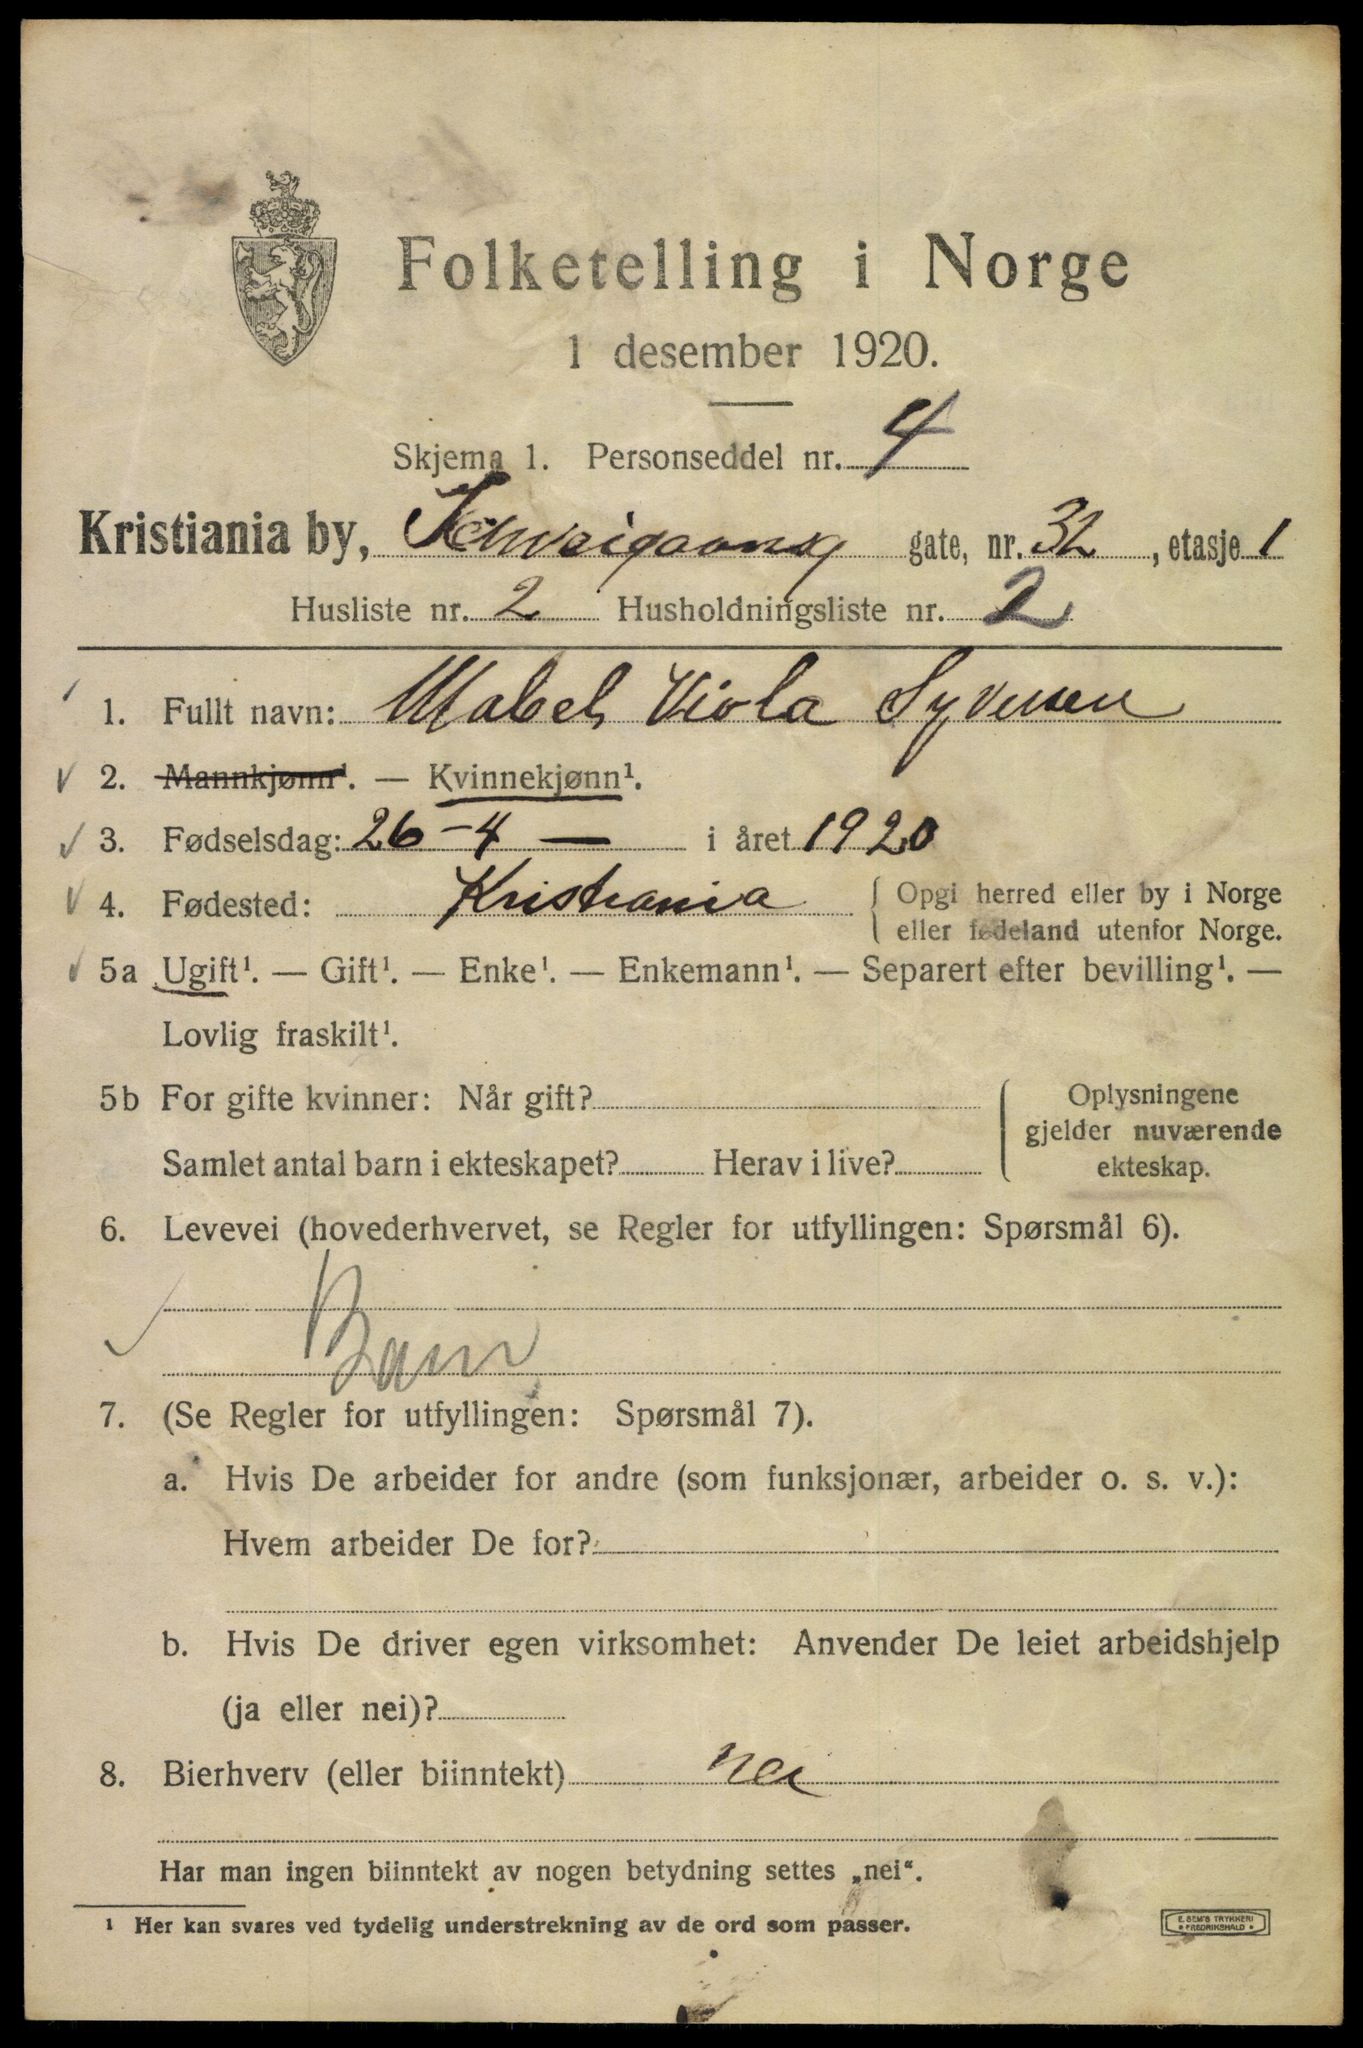 Folketelling i Norge
1 desember 1920.
Skjema 1. Personseddel nr. 4
Kristiania by, Schweigaards gate, nr. 32, etasje 1
Husliste nr. 2 Husholdningsliste nr. 2
1. Fullt navn: Mabel Viola Syversen
2. Mannkjønn¹. — Kvinnekjønn¹.
3. Fødselsdag: 26-4 — i året 1920
4. Fødested: Kristiania { Opgi herred eller by i Norge
eller fødeland utenfor Norge.
5a Ugift¹. — Gift¹. — Enke¹. — Enkemann¹. — Separert efter bevilling¹. —
Lovlig fraskilt¹.
5b For gifte kvinner: Når gift?
Samlet antal barn i ekteskapet? Herav i live?
Oplysningene
gjelder nuværende
ekteskap.
6. Levevei (hovederhvervet, se Regler for utfyllingen: Spørsmål 6).
Barn
7. (Se Regler for utfyllingen: Spørsmål 7).
a. Hvis De arbeider for andre (som funksjonær, arbeider o. s. v.):
Hvem arbeider De for?
b. Hvis De driver egen virksomhet: Anvender De leiet arbeidshjelp
(ja eller nei)?
8. Bierhverv (eller biinntekt) nei
Har man ingen biinntekt av nogen betydning settes „nei“.
¹ Her kan svares ved tydelig understrekning av de ord som passer.
E. SEM'S TRYKKERI
FREDRIKSHALD